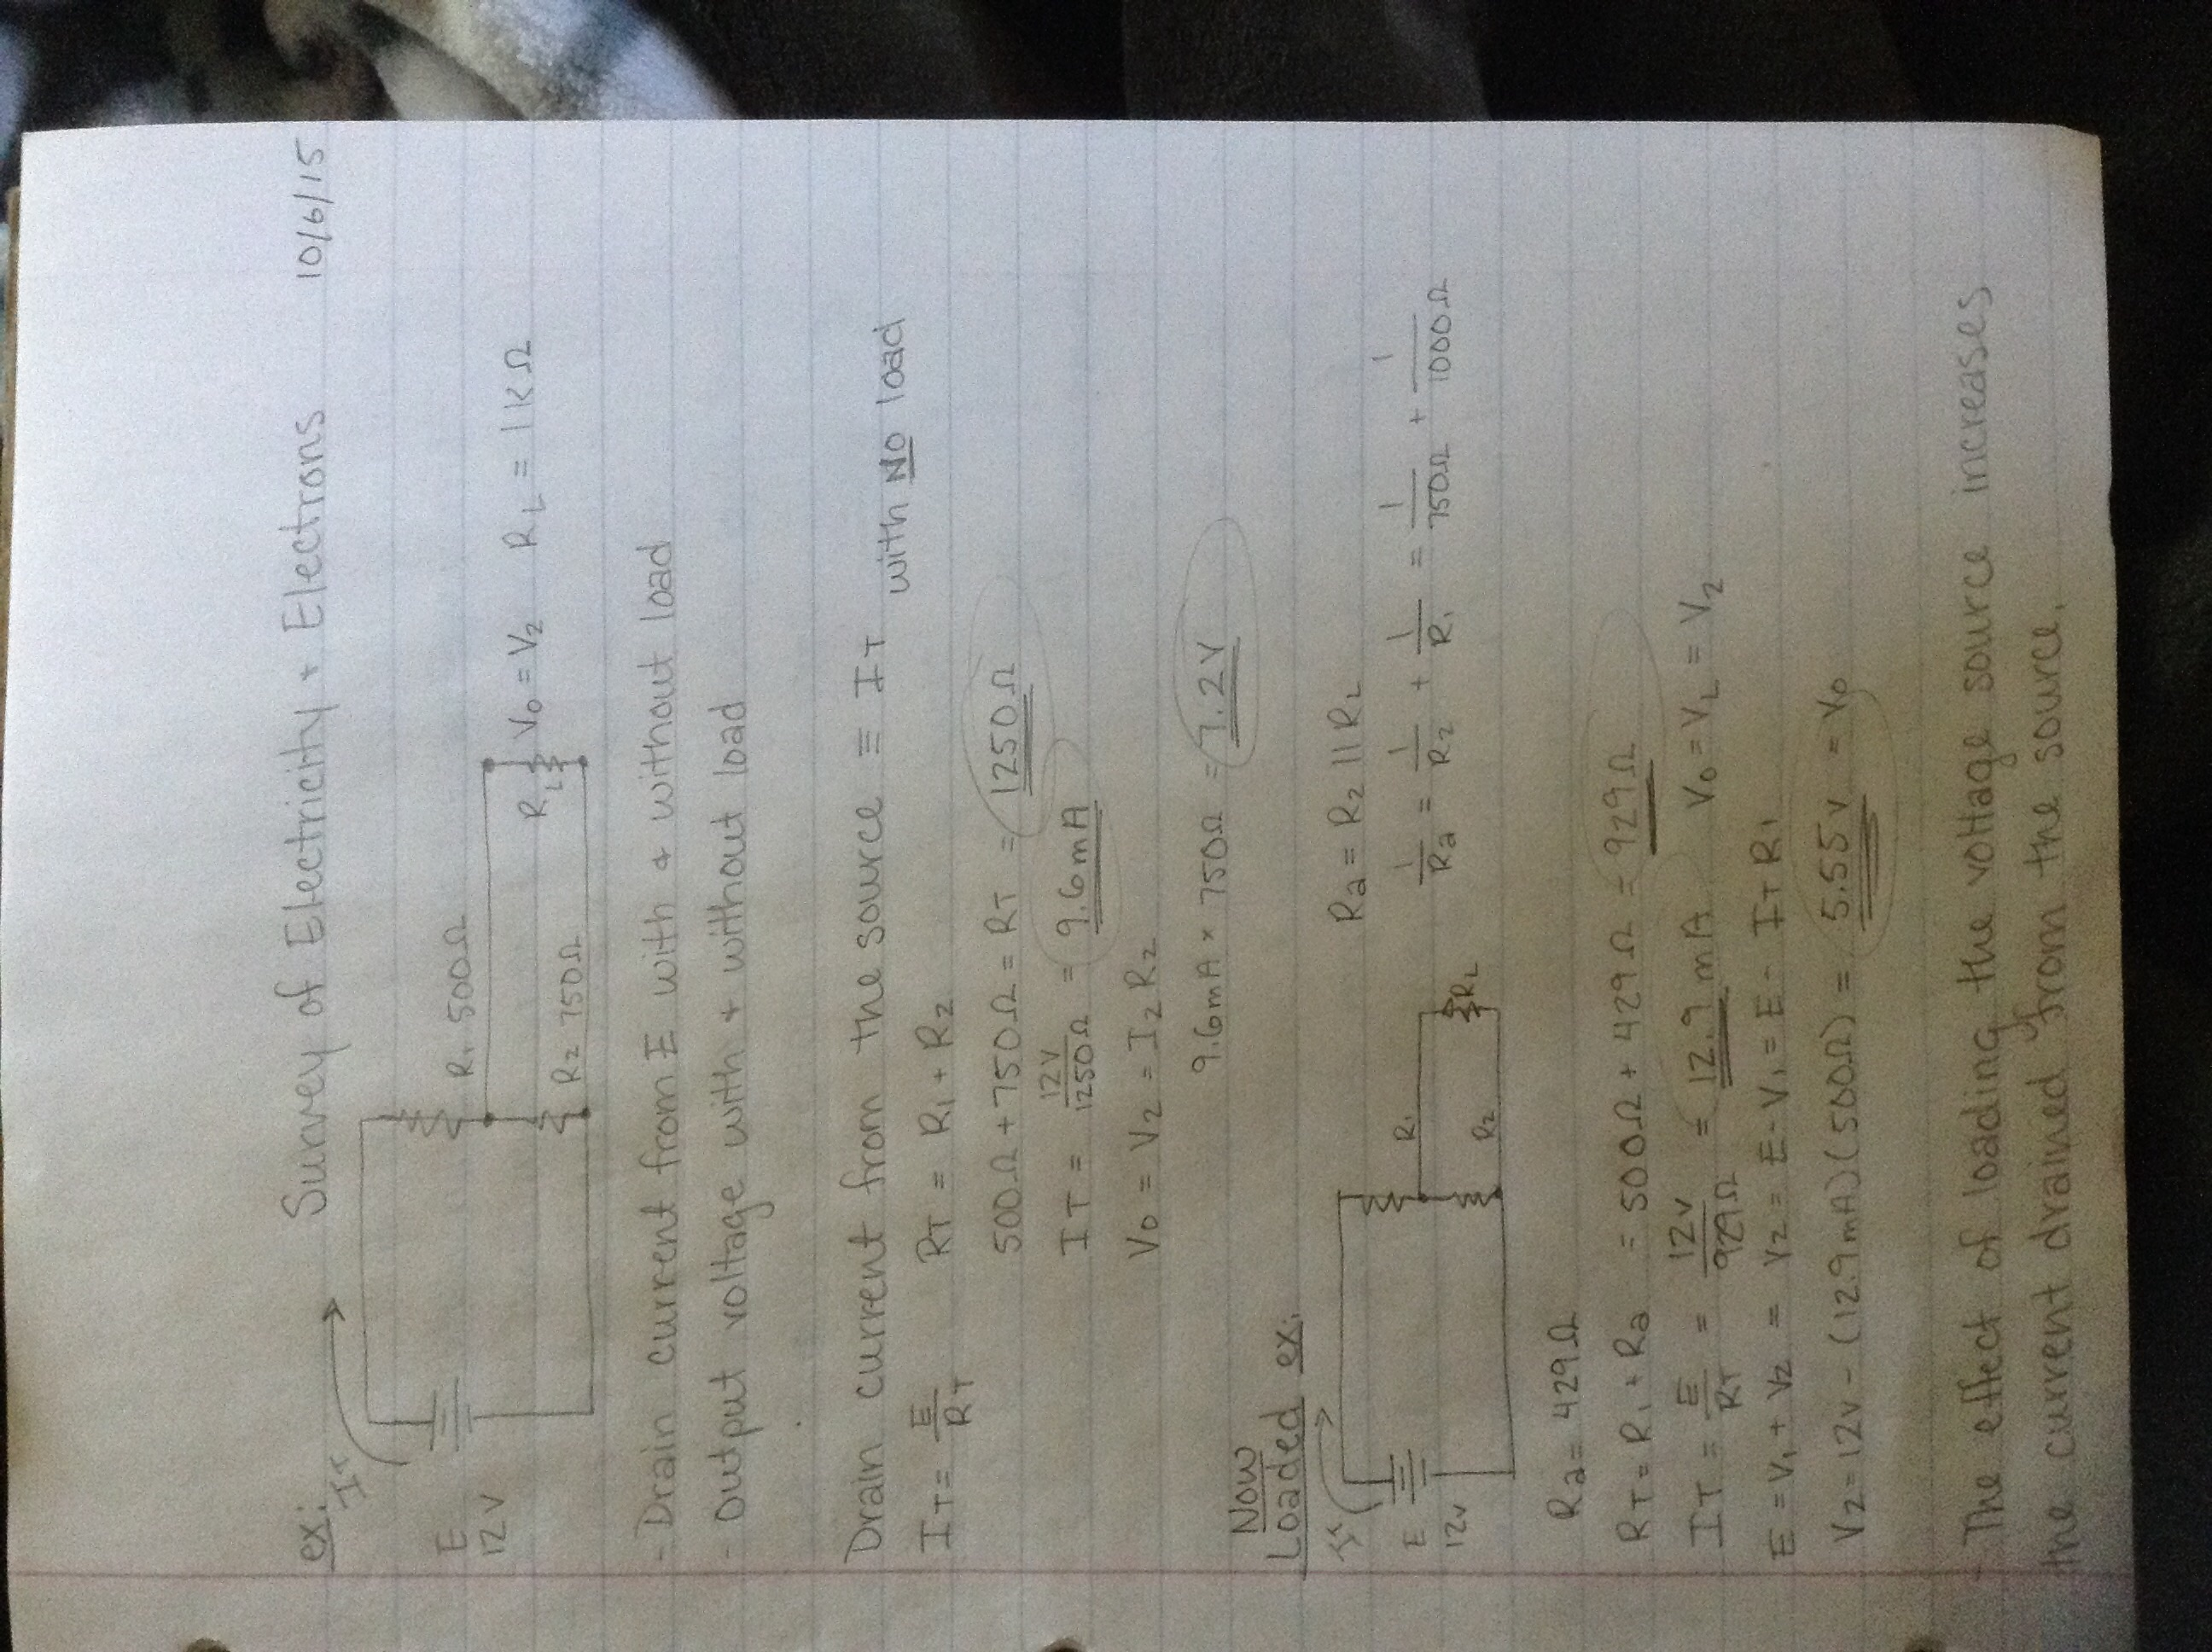 Survey of Electricity + Electrons 10/6/15
ex:
I
E
12V
R₁ 500Ω
R₂ 750Ω
R_L
V₀ = V₂ R_L = 1KΩ
- Drain current from E with + without load
- Output voltage with + without load
Drain current from the source ≡ I_T
with NO load
I_T = E/R_T R_T = R₁ + R₂
500Ω + 750Ω = R_T = 1250Ω
I_T = 12V/1250Ω = 9.6mA
V₀ = V₂ = I₂R₂
9.6mA × 750Ω = 7.2V
Now
Loaded ex:
I
E
12V
R₁
R₂
R_L
Ra = R₂ || R_L
1/Ra = 1/R₂ + 1/R₁ = 1/750Ω + 1/1000Ω
Ra = 429Ω
R_T = R₁ + Ra = 500Ω + 429Ω = 929Ω
I_T = E/R_T = 12V/929Ω = 12.9mA V₀ = V_L = V₂
E = V₁ + V₂ = V₂ = E - V₁ = E - I_T R₁
V₂ = 12V - (12.9mA)(500Ω) = 5.55V = V₀
- The effect of loading the voltage source increases
the current drained from the source.